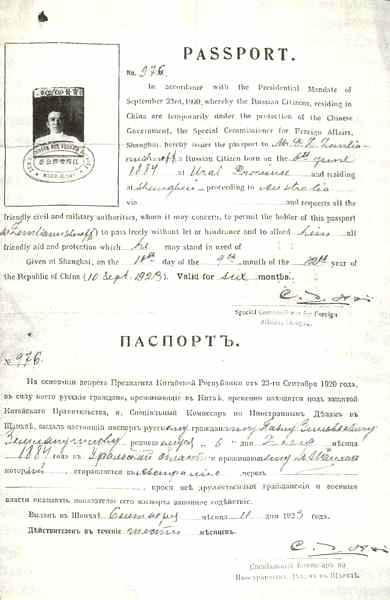 PASSPORT.
No. 976.
In accordance with the Presidential Mandate of
September 23rd, 1920, whereby the Russian Citizens, residing in
China are temporarily under the protection of the Chinese
Government, the Special Commissioner for Foreign Affairs,
Shanghai, hereby issues the passport to Mr.
a Russian Citizen born on the 6th June
1887 at Ural Province and residing
at Shanghai proceeding to Australia
via and requests all the
friendly civil and military authorities, whom it may concern, to permit the holder of this passport
to pass freely without let or hindrance and to afford him all
friendly aid and protection which he may stand in need of
Given at Shanghai, on the 10th day of the 9th month of the 12th year of
the Republic of China (10 Sept. 1923). Valid for six months.
Special Commissioner for Foreign
Affairs, Shanghai.
ПАСПОРТЪ.
№ 976.
На основанiи декрета Президента Китайской Республики отъ 23-го Сентября 1920 года,
въ силу коего русскiе граждане, проживающiе въ Китаѣ, временно находятся подъ защитой
Китайскаго Правительства, и, Спецiальный Комиссаръ по Иностраннымъ Дѣламъ въ
Шанхаѣ, выдалъ настоящiй паспортъ русскому гражданину Павлу Зиновьевичу
Землянушнову, родившемуся " 6 " дня Iюня мѣсяца
1887 года въ Уральской области и проживающему въ Шанхаѣ
который отправляется въ Австралiю черезъ
прося всѣ дружественныя гражданскiя и военныя
власти оказывать показателю сего паспорта законное содѣйствiе.
Выданъ въ Шанхаѣ Сентября мѣсяца 10 дня 1923 года.
Дѣйствителенъ въ теченiе шести мѣсяцевъ.
Спецiальный Комиссаръ по
Иностраннымъ Дѣламъ въ Шанхаѣ.